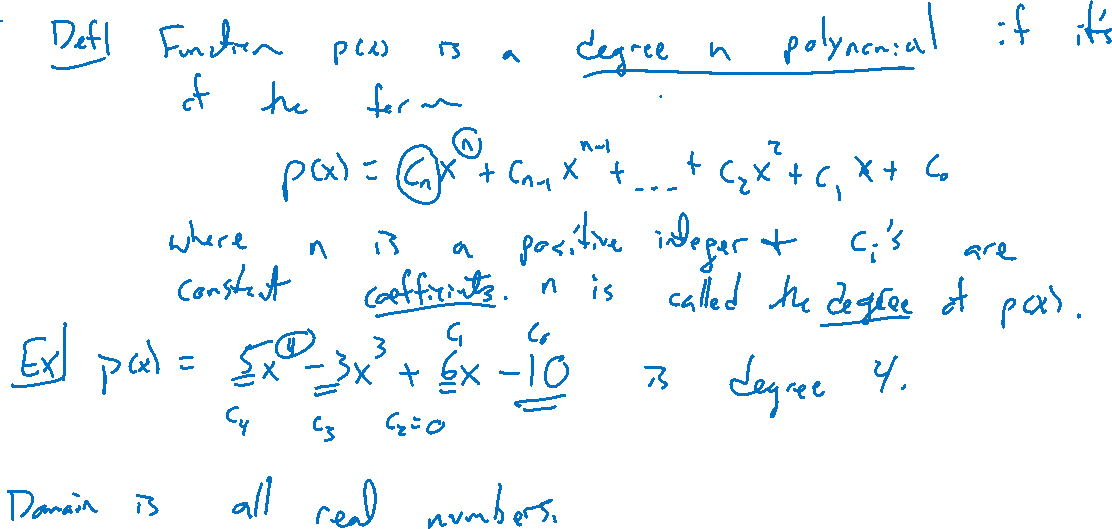 Def| Function p(x) is a degree n polynomial if it's
of the form
p(x) = cₙxⁿ + cₙ₋₁xⁿ⁻¹ + ... + c₂x² + c₁x + c₀
where n is a positive integer + cᵢ's are
constant coefficients. n is called the degree of p(x).
c₁ c₀
Ex| p(x) = 5x⁴ - 3x³ + 6x - 10 is degree 4.
c₄ c₃ c₂=0
Domain is all real numbers.